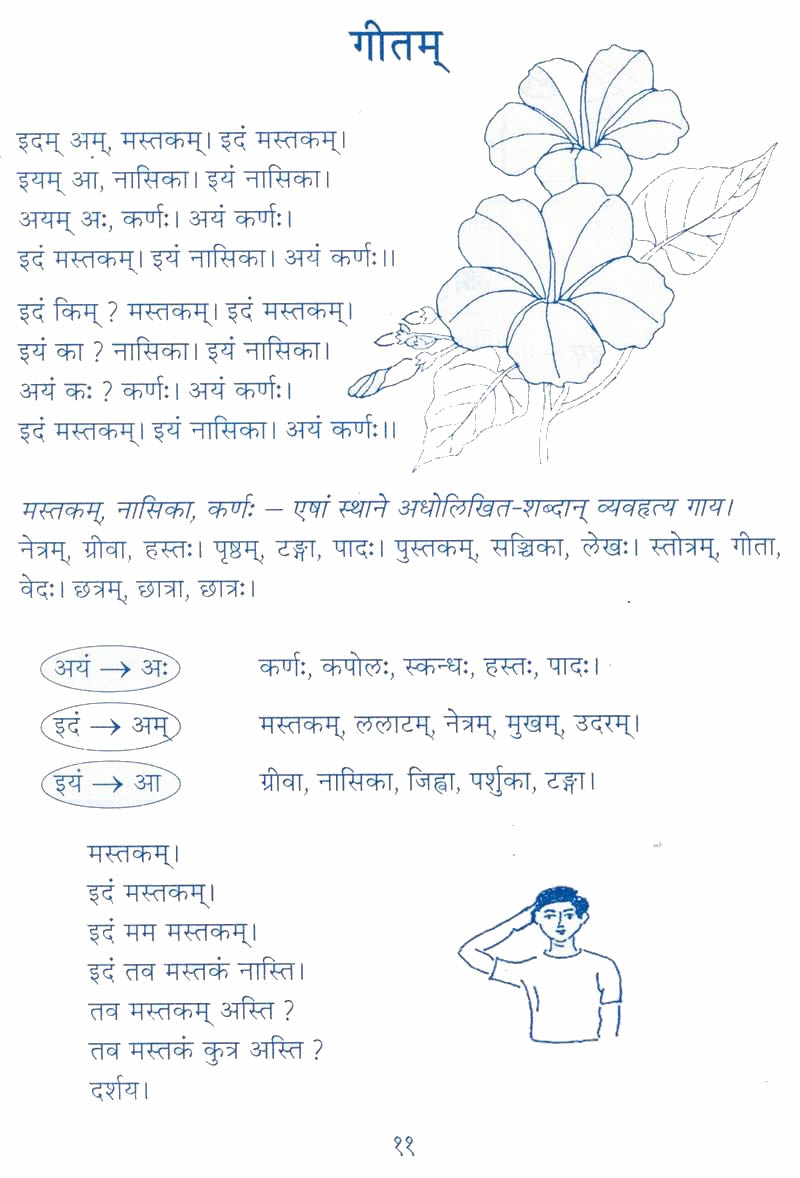 गीतम्
इदम् अम्, मस्तकम्। इदं मस्तकम्।
इयम् आ, नासिका। इयं नासिका।
अयम् अः, कर्णः। अयं कर्णः।
इदं मस्तकम्। इयं नासिका। अयं कर्णः।।
इदं किम् ? मस्तकम्। इदं मस्तकम्।
इयं का ? नासिका। इयं नासिका।
अयं कः ? कर्णः। अयं कर्णः।
इदं मस्तकम्। इयं नासिका। अयं कर्णः।।
मस्तकम्, नासिका, कर्णः – एषां स्थाने अधोलिखित-शब्दान् व्यवहृत्य गाय।
नेत्रम्, ग्रीवा, हस्तः। पृष्ठम्, टङ्गा, पादः। पुस्तकम्, सञ्चिका, लेखः। स्तोत्रम्, गीता,
वेदः। छत्रम्, छात्रा, छात्रः।
अयं → अः कर्णः, कपोलः, स्कन्धः, हस्तः, पादः।
इदं → अम् मस्तकम्, ललाटम्, नेत्रम्, मुखम्, उदरम्।
इयं → आ ग्रीवा, नासिका, जिह्वा, पर्शुका, टङ्गा।
मस्तकम्।
इदं मस्तकम्।
इदं मम मस्तकम्।
इदं तव मस्तकं नास्ति।
तव मस्तकम् अस्ति ?
तव मस्तकं कुत्र अस्ति ?
दर्शय।
११